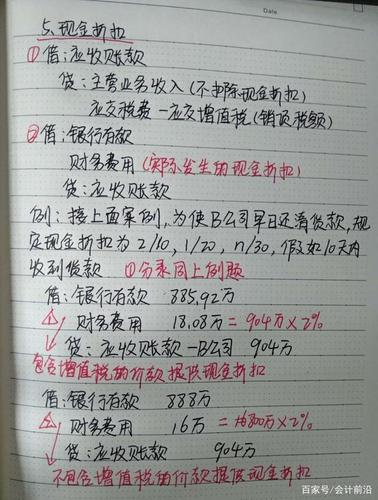 Date
5、现金折扣
①借：应收账款
贷：主营业务收入（不扣除现金折扣）
应交税费－应交增值税（销项税额）
②借：银行存款
财务费用（实际发生的现金折扣）
贷：应收账款
例：接上面案例，为使B公司早日还清货款，规
定现金折扣为2/10，1/20，n/30，假如10天内
收到货款 ①分录同上例题
借：银行存款 885.92万
财务费用 18.08万＝904万×2%
贷：应收账款－B公司 904万
包含增值税的价款提供现金折扣
借：银行存款 888万
财务费用 16万＝800万×2%
贷：应收账款 904万
不包含增值税的价款提供现金折扣
百家号/会计前沿